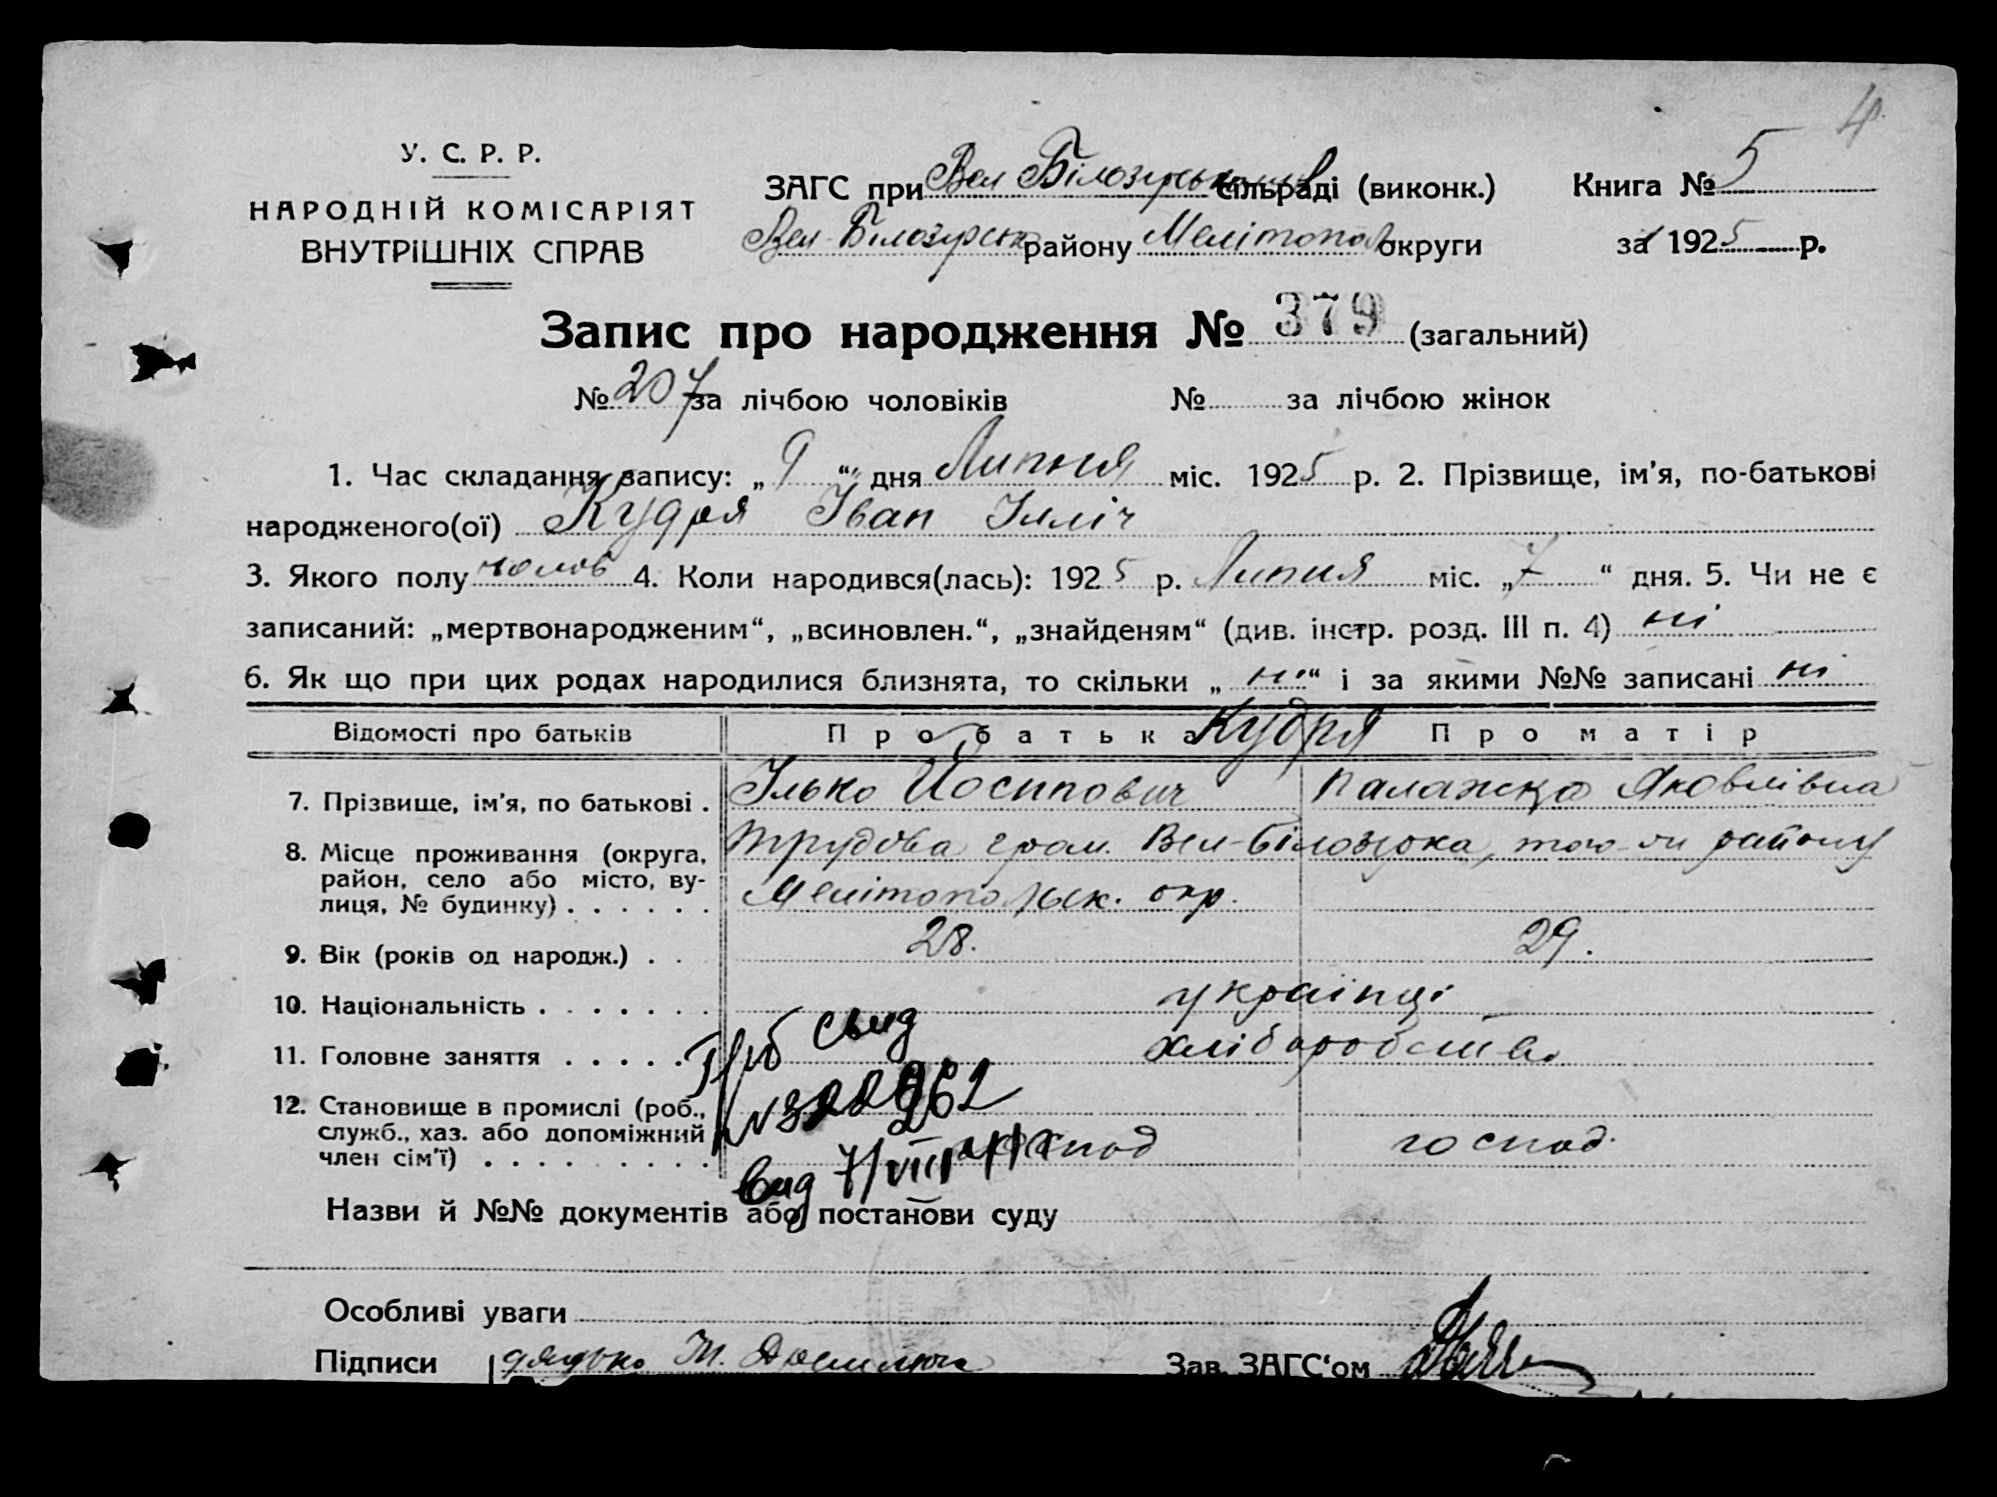 4
У. С. Р. Р.
НАРОДНІЙ КОМІСАРІЯТ
ВНУТРІШНІХ СПРАВ
ЗАГС при Вел Білозирськом сільраді (виконк.) Книга № 5
Вел-Білозирськ району Мелітопол округи за 1925 р.
Запис про народження № 379 (загальний)
№ 207 за лічбою чоловіків № за лічбою жінок
1. Час складання запису: „ 9 “ дня Липня міс. 1925 р. 2. Прізвище, ім'я, по-батькові
народженого(ої) Кудря Іван Ілліч
3. Якого полу чолов 4. Коли народився(лась): 1925 р. Липня міс. „ 7 “ дня. 5. Чи не є
записаний: „мертвонародженим“, „всиновлен.“, „знайденям“ (див. інстр. розд. III п. 4) ні
6. Як що при цих родах народилися близнята, то скільки „ ні “ і за якими №№ записані ні
Відомості про батьків Про батька Кудря Про матір
7. Прізвище, ім'я, по батькові . Ілько Йосипович Палажка Яковлівна
8. Місце проживання (округа, район, село або місто, вулиця, № будинку) . . . . . . Трудова гром. Вел-Білозірка, того-ж району
Мелітопольск. окр.
9. Вік (років од народж.) . . 28. 29.
10. Національність . . . . . . . українці
11. Головне заняття . . . . . хліборобство
свид
12. Становище в промислі (роб., служб., хаз. або допоміжний член сім'ї) . . . . . . . . господ господ.
Назви й №№ документів або постанови суду
Особливі уваги
Підписи Зав. ЗАГС'ом